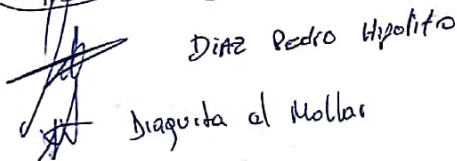 DiAZ Pedro Hipolito
Diaguita el Mollar